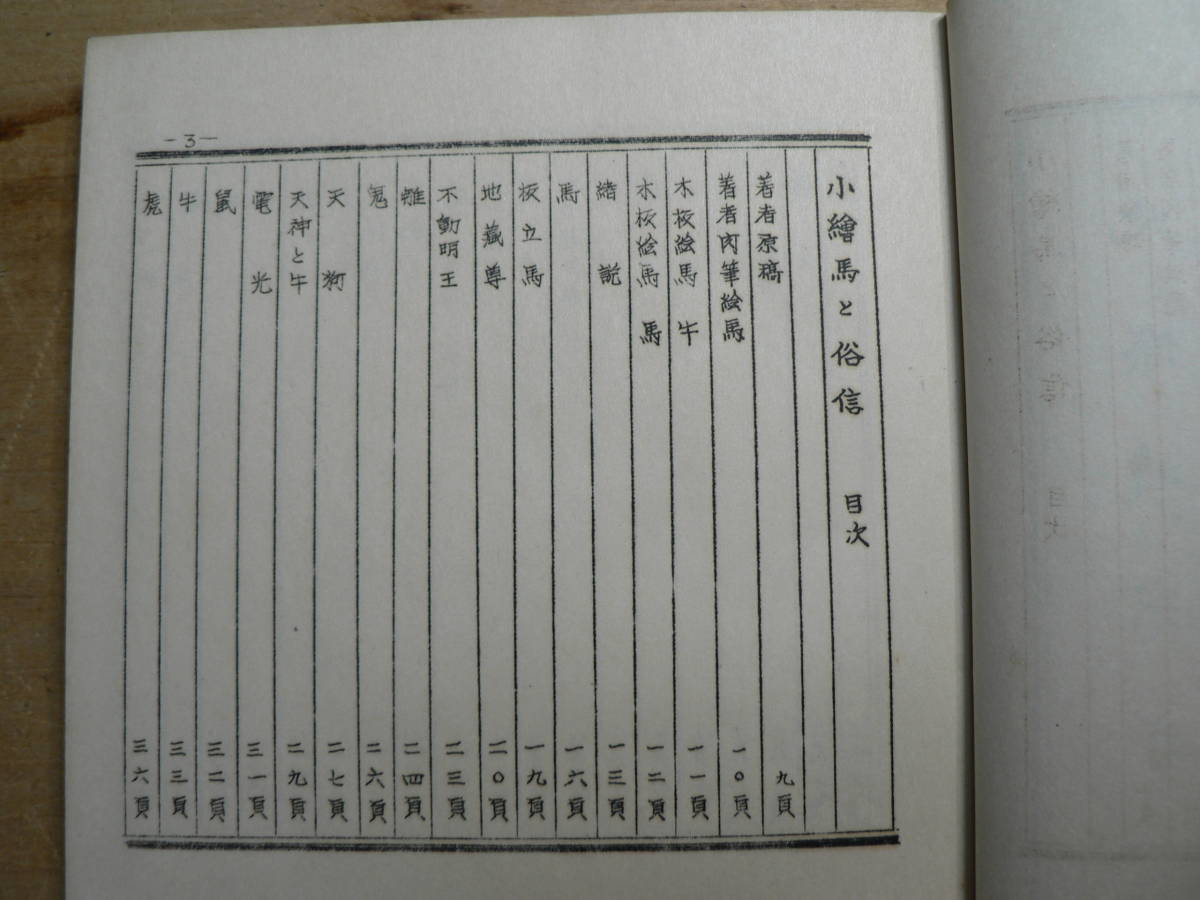 小繪馬と俗信 目次
著者原稿 九頁
著者肉筆絵馬 一〇頁
木板絵馬 牛 一一頁
木板絵馬 馬 一二頁
緒説 一三頁
馬 一六頁
板立馬 一九頁
地藏尊 二〇頁
不動明王 二三頁
雉 二四頁
鬼 二六頁
天狗 二七頁
天神と牛 二九頁
電光 三一頁
鼠 三二頁
牛 三三頁
虎 三六頁
-3-